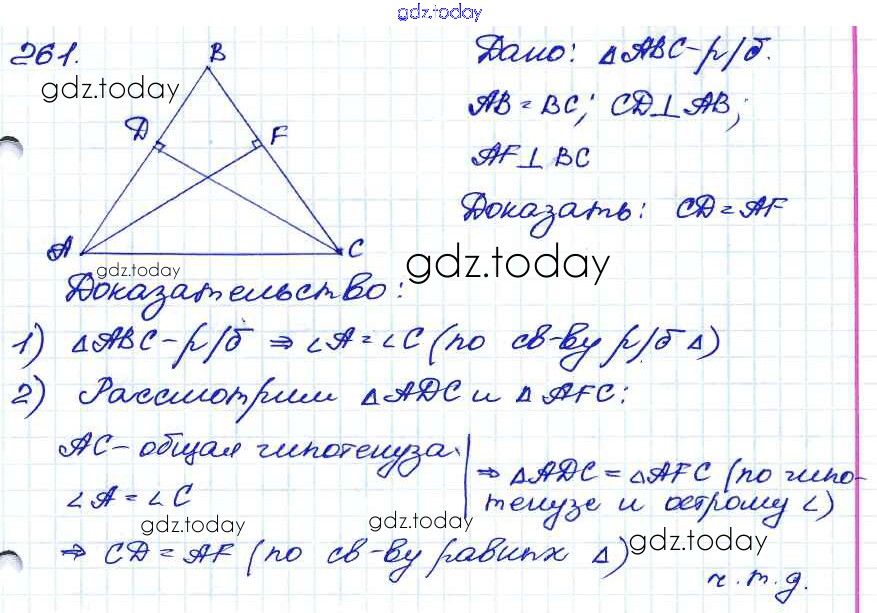 gdz.today
261.
B
gdz.today
D
F
A
C
gdz.today
Дано: △ABC-р/б.
AB = BC; CD⊥AB;
AF⊥BC
Доказать: CD = AF
gdz.today
Доказательство:
1) △ABC-р/б ⇒ ∠A = ∠C (по св-ву р/б △)
2) Рассмотрим △ADC и △AFC:
AC - общая гипотенуза
∠A = ∠C
⇒ △ADC = △AFC (по гипо-
тенузе и острому ∠)
gdz.today
gdz.today
⇒ CD = AF (по св-ву равных △)
gdz.today
ч.т.д.